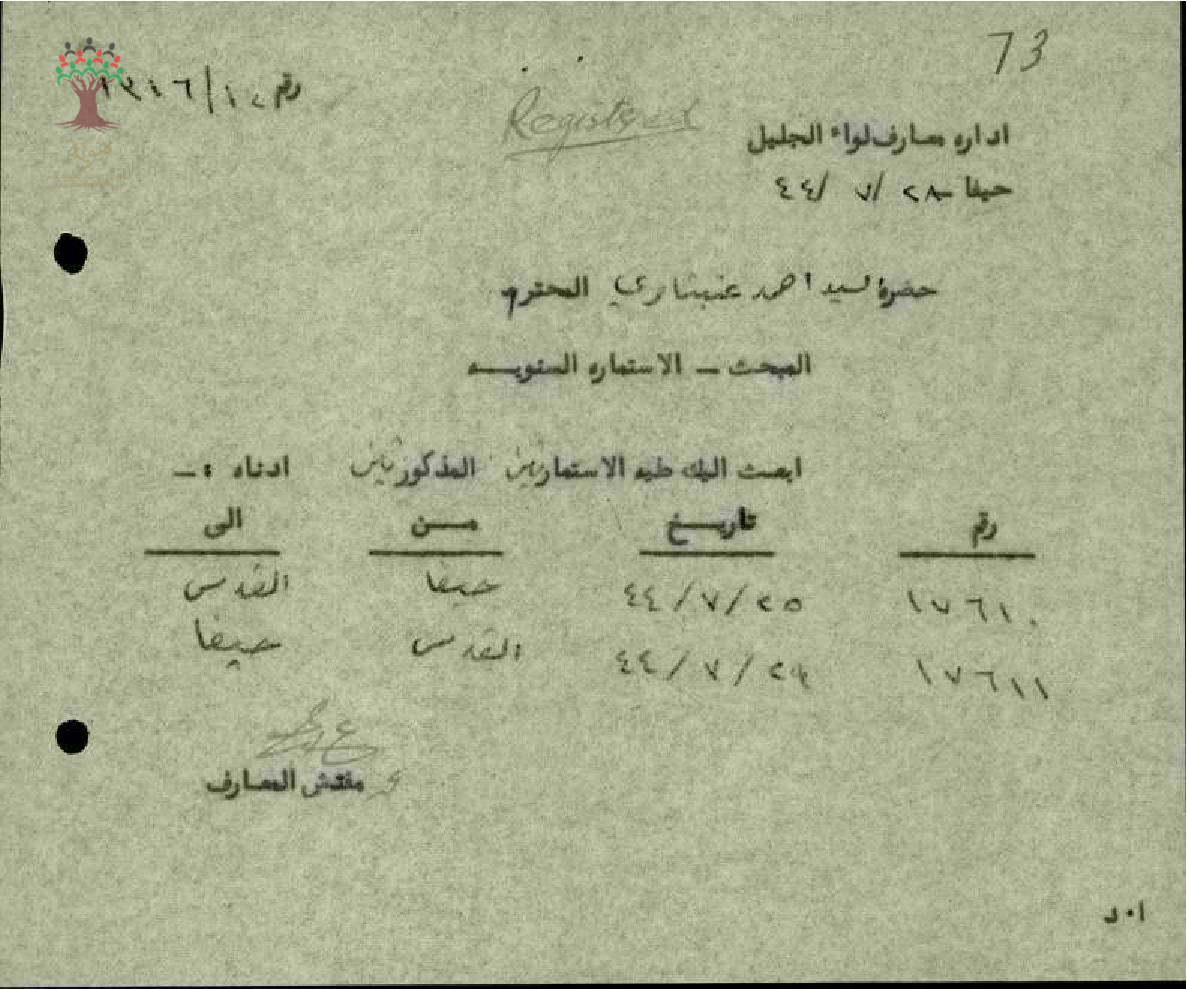 73
رقم ١٣٤٦/١٠
Registered
اداره معارف لواء الجليل
حيفا - ٢٨/ ٧/ ٤٤
حضرة السيد احمد عنبتاوي المحترم
المبحث - الاستماره السنويه
ابعث اليك طيه الاستمارتين المذكورتين ادناه :-
رقم تاريخ من الى
١٧٦١٠ ٢٥/٧/٤٤ حيفا القدس
١٧٦١١ ٢٩/٧/٤٤ القدس حيفا
مفتش المعارف
ا٠د